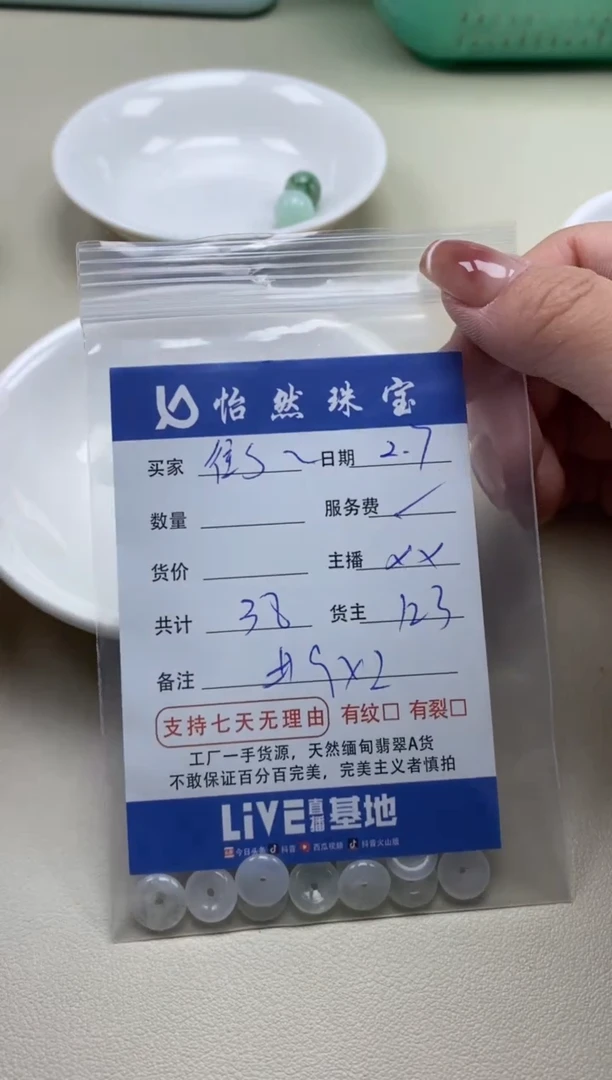 怡然珠宝
买家 日期 2.7
数量 服务费
货价 主播 XX
共计 38 货主 123
备注
支持七天无理由 有纹□ 有裂□
工厂一手货源，天然缅甸翡翠A货
不敢保证百分百完美，完美主义者慎拍
LiVE直播基地
今日头条 抖音 西瓜视频 抖音火山版